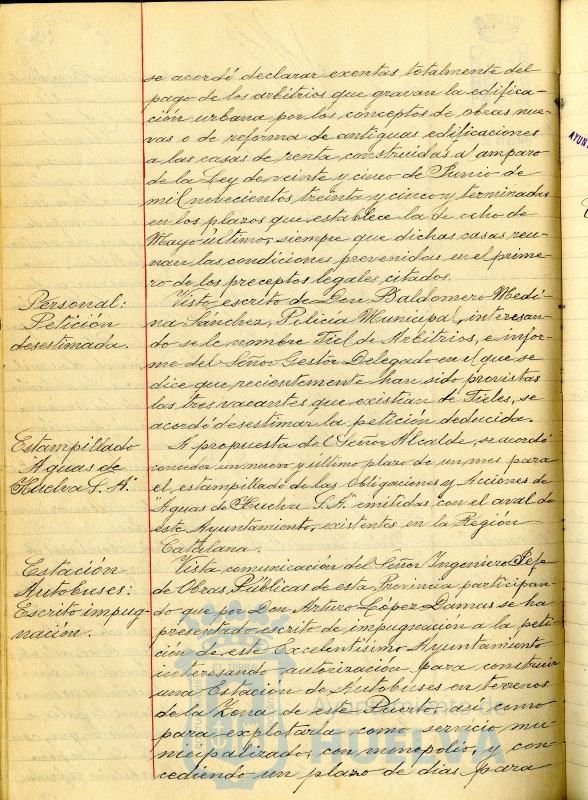 se acordó declarar exentas totalmente del
pago de los arbitrios que gravan la edifica-
ción urbana por los conceptos de obras nue-
vas o de reforma de antiguas edificaciones
a las casas de renta construidas al amparo
de la Ley de veinte y cinco de Junio de
mil novecientos treinta y cinco y terminadas
en los plazos que establece la de ocho de
Mayo último, siempre que dichas casas reu-
nan las condiciones prevenidas en el prime-
ro de los preceptos legales citados.
Personal:
Petición
desestimada.
Visto escrito de Don Baldomero Medi-
na Sánchez, Policía Municipal, interesan-
do se le nombre Fiel de Arbitrios, e infor-
me del Señor Gestor Delegado en el que se
dice que recientemente han sido provistas
las tres vacantes que existían de Fieles, se
acordó desestimar la petición deducida.
Estampillado
Aguas de
Huelva S.A.
A propuesta del Señor Alcalde, se acordó
conceder un nuevo y último plazo de un mes para
el estampillado de las Obligaciones y Acciones de
"Aguas de Huelva S.A." emitidas con el aval de
este Ayuntamiento, existentes en la Región
Catalana.
Estación
Autobuses:
Escrito impug-
nación.
Vista comunicación del Señor Ingeniero Jefe
de Obras Públicas de esta Provincia participan-
do que por Don Arturo López Damas se ha
presentado escrito de impugnación a la peti-
ción de este Excelentísimo Ayuntamiento
interesando autorización para construir
una Estación de Autobuses en terrenos
de la Zona de este Puerto, así como
para explotarla como servicio mu-
nicipalizado, con monopolio, y con-
cediendo un plazo de días para
Ayuntamiento de
HUELVA
AYUN